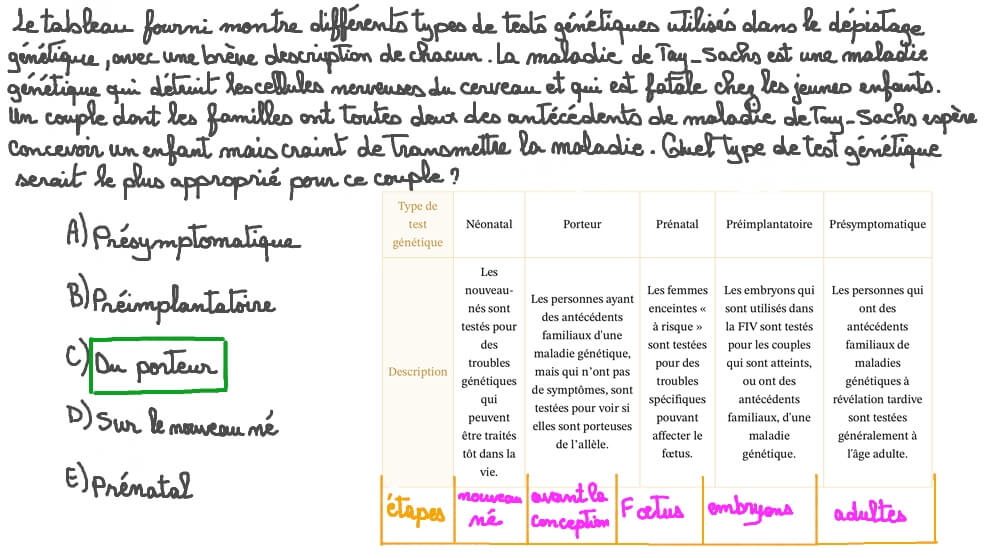 Le tableau fourni montre différents types de tests génétiques utilisés dans le dépistage
génétique, avec une brève description de chacun. La maladie de Tay-Sachs est une maladie
génétique qui détruit les cellules nerveuses du cerveau et qui est fatale chez les jeunes enfants.
Un couple dont les familles ont toutes deux des antécédents de maladie de Tay-Sachs espère
concevoir un enfant mais craint de transmettre la maladie. Quel type de test génétique
serait le plus approprié pour ce couple ?
A) Présymptomatique
B) Préimplantatoire
C) Du porteur
D) Sur le nouveau né
E) Prénatal
Type de
test
génétique
Néonatal
Porteur
Prénatal
Préimplantatoire
Présymptomatique
Description
Les
nouveau-
nés sont
testés pour
des
troubles
génétiques
qui
peuvent
être traités
tôt dans la
vie.
Les personnes ayant
des antécédents
familiaux d'une
maladie génétique,
mais qui n'ont pas
de symptômes, sont
testées pour voir si
elles sont porteuses
de l'allèle.
Les femmes
enceintes «
à risque »
sont testées
pour des
troubles
spécifiques
pouvant
affecter le
fœtus.
Les embryons qui
sont utilisés dans
la FIV sont testés
pour les couples
qui sont atteints,
ou ont des
antécédents
familiaux, d'une
maladie
génétique.
Les personnes qui
ont des
antécédents
familiaux de
maladies
génétiques à
révélation tardive
sont testées
généralement à
l'âge adulte.
étapes
nouveau
né
avant la
conception
Fœtus
embryons
adultes